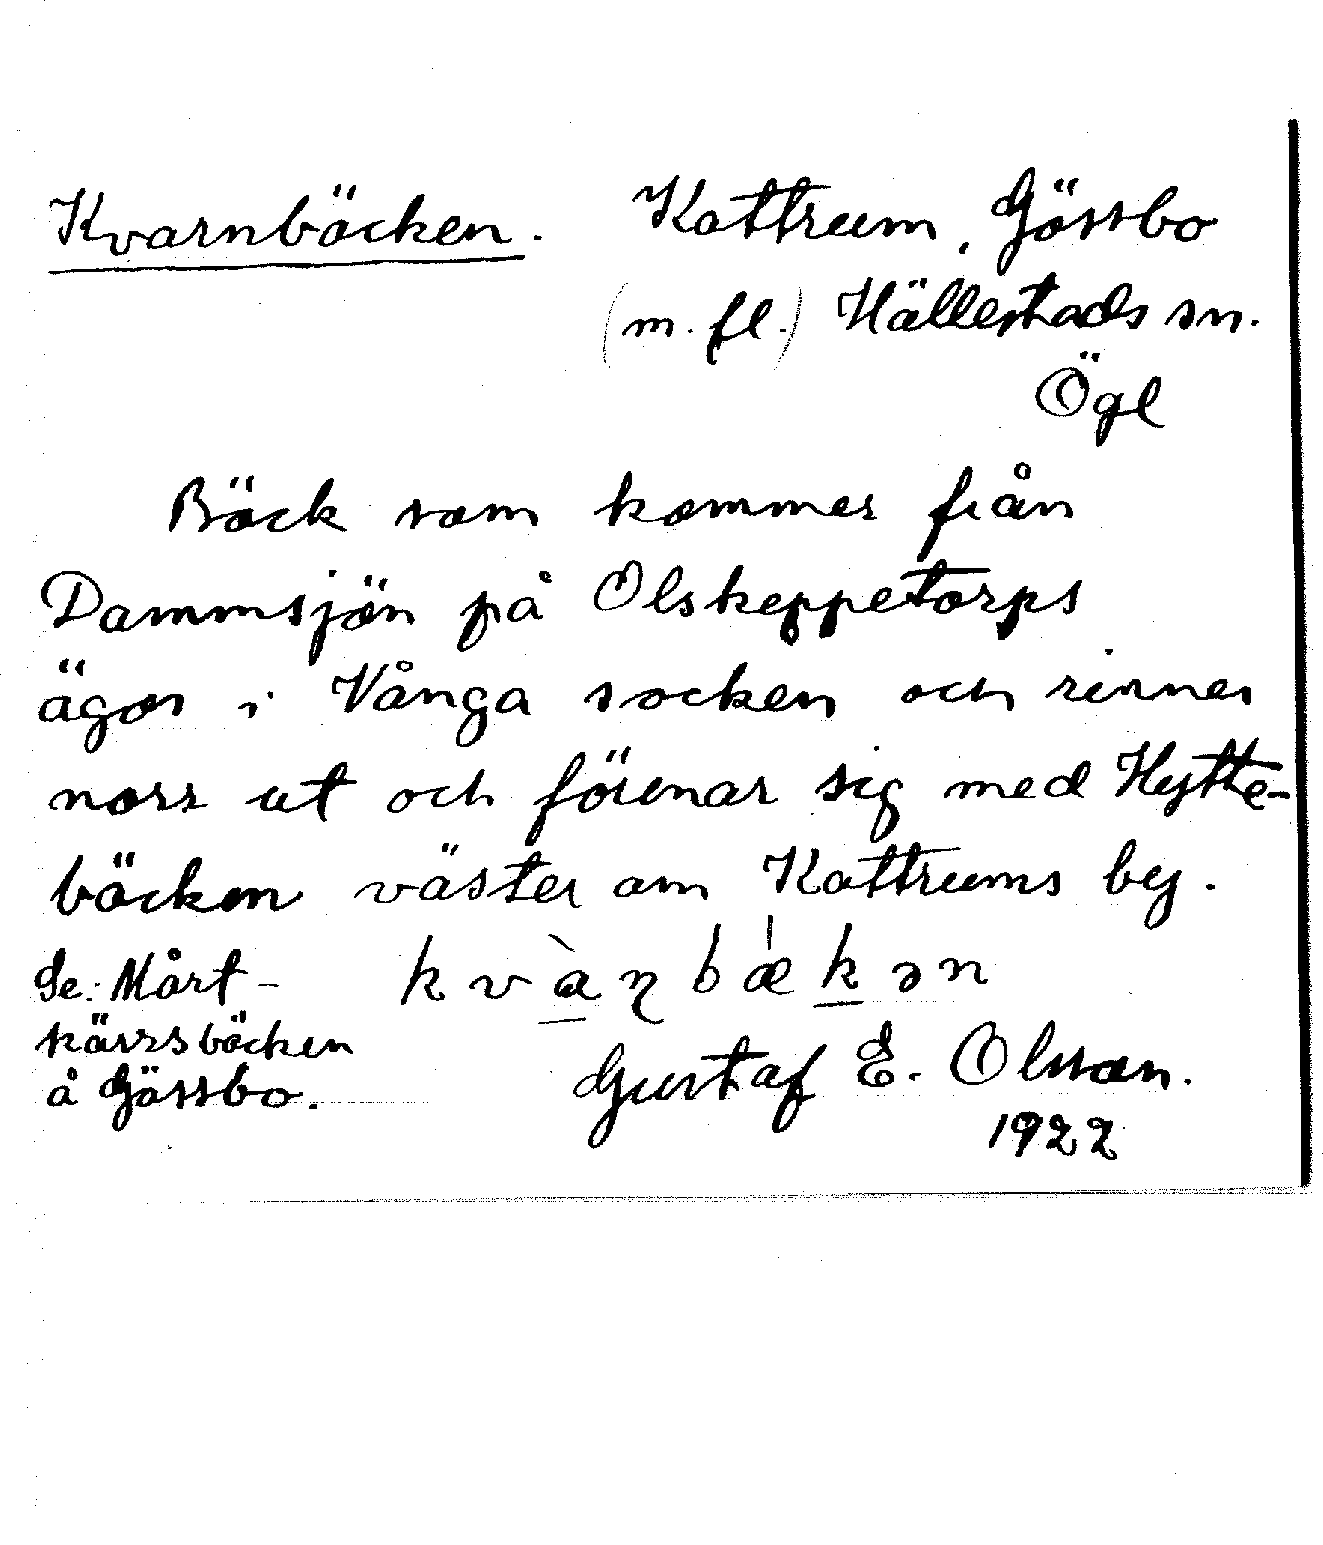 Kvarnbäcken. Kattrum, Gössbo
(m. fl.) Hällestads sn.
Ögl
Bäck som kommer från
Dammsjön på Olskeppetorps
ägor i Vånga socken och rinner
norr ut och förenar sig med Hytte-
bäcken väster om Kattrums by.
Se: Mårt-
kärrsbäcken
å Gössbo.
kvàɳbækən
Gustaf E. Olsson.
1922